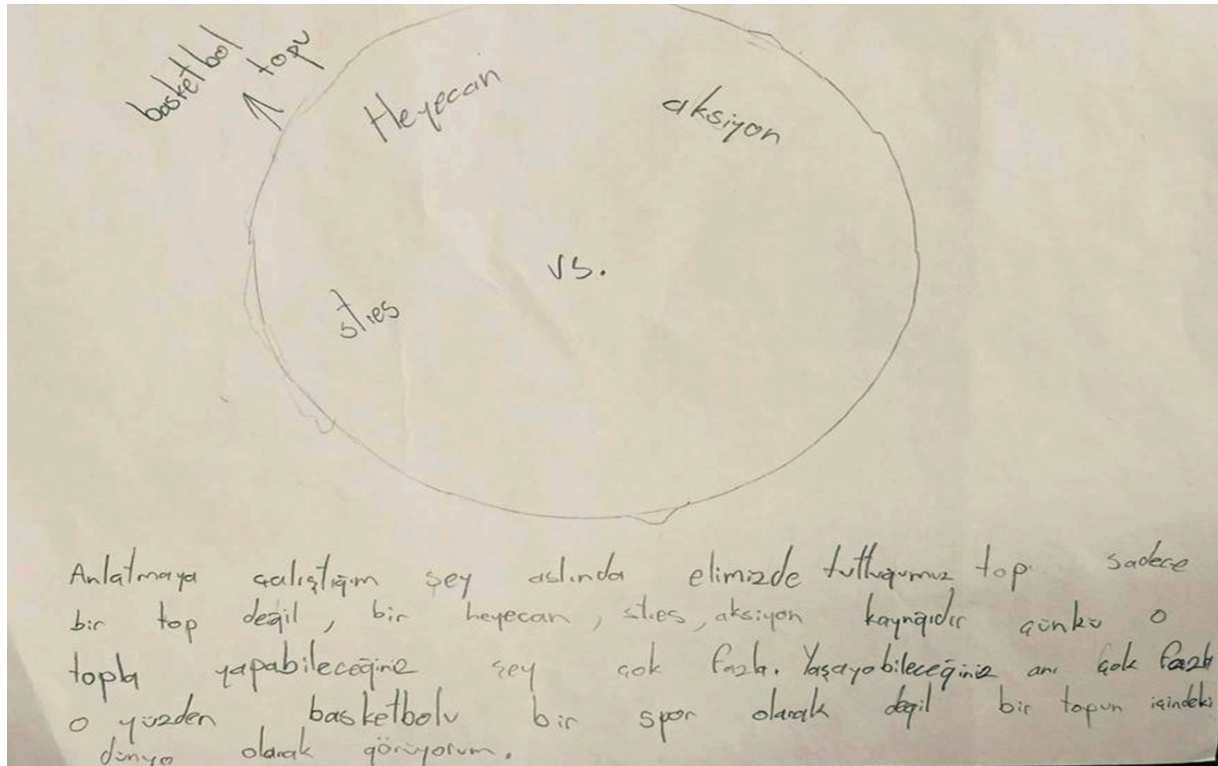 basketbol
topu
Heyecan
aksiyon
vs.
stres
Anlatmaya çalıştığım şey aslında elimizde tuttuğumuz top sadece
bir top değil, bir heyecan, stres, aksiyon kaynağıdır çünkü o
topla yapabileceğiniz şey çok fazla. Yaşayabileceğiniz anı çok fazla
o yüzden basketbolu bir spor olarak değil bir topun içindeki
dünya olarak görüyorum.